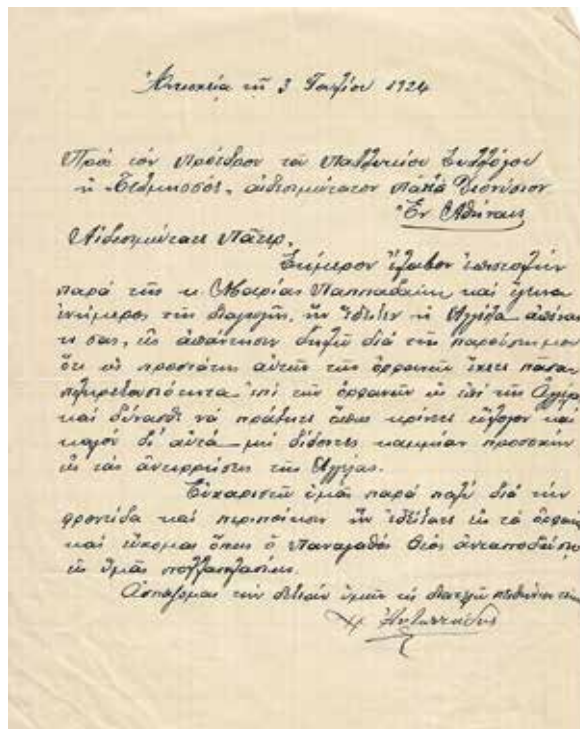 τῇ 3 1924
Πρὸς τὸν Πρόεδρον τοῦ Συλλόγου
"Τελμησσός" αἰδεσιμώτατον Παπᾶ Διονύσιον
Ἐν Ἀθήναις
Αἰδεσιμώτατε Πάτερ,
Σήμερον ἔλαβον ἐπιστολὴν
παρὰ τῆς κ. Μαρίας καὶ ἔγεινα
ἐνήμερος τῆς διαγωγῆς, ἣν ἔδειξεν ἡ Ἀγγέλα ἀπέναν
τι σας, εἰς ἀπάντησιν διὰ τῆς παρούσης μου
ὅτι ὡς προστάτης αὐτῶν τῶν ὀρφανῶν ἔχετε πᾶσαν
πληρεξουσιότητα ἐπὶ τῶν ὀρφανῶν ὡς ἐπὶ τῆς
καὶ δύνασθε νὰ πράξητε ὅπως κρίνετε εὔλογον καὶ
καλὸν δι' αὐτὰ μὴ δίδοντες καμμίαν προσοχὴν
εἰς τὰς ἀντιρρήσεις τῆς
Εὐχαριστῶ ὑμᾶς παρὰ πολὺ διὰ τὴν
φροντίδα καὶ περιποίησιν ἣν ἐδείξατε εἰς τὰ ὀρφανὰ
καὶ εὔχομαι ὅπως ὁ Πανάγαθος Θεὸς ἀνταποδώσῃ
εἰς ὑμᾶς πολλαπλασίως.
Ἀσπάζομαι τὴν δεξιὰν ὑμῶν